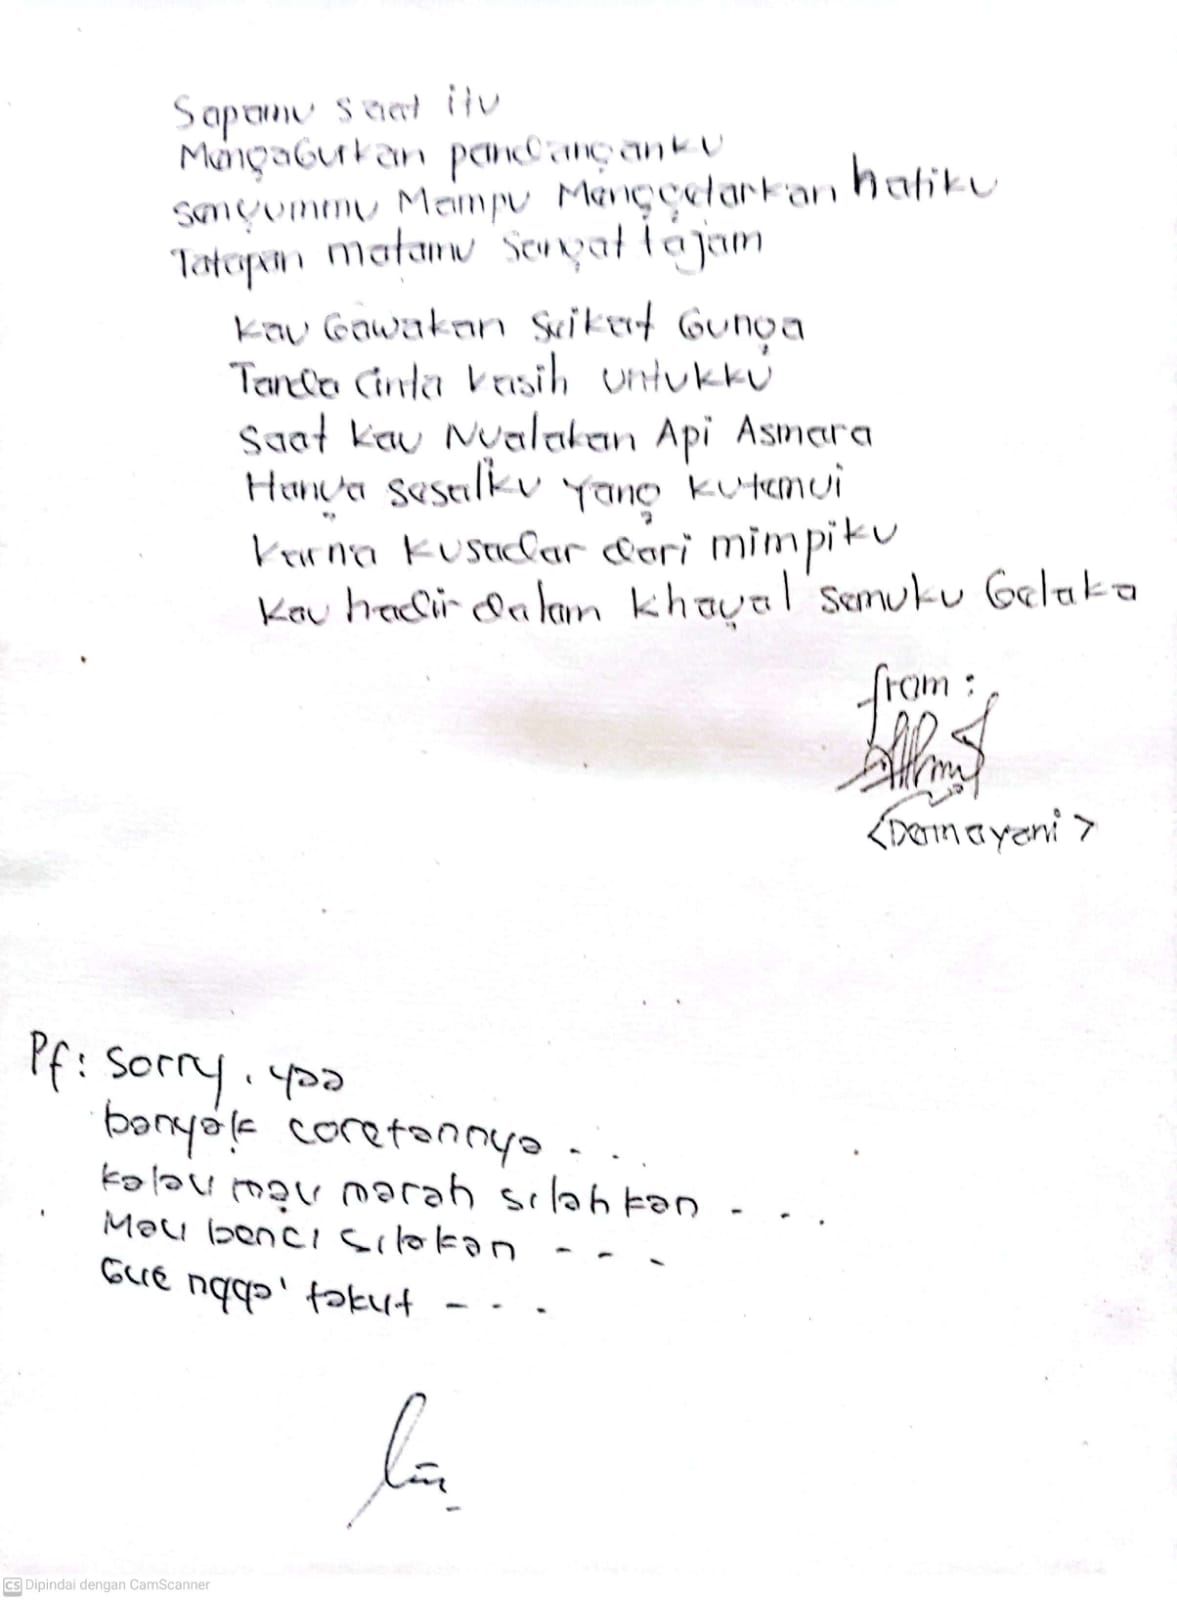 Sapamu saat itu
Mengaburkan pandanganku
senyummu Mampu Menggetarkan hatiku
Tatapan matamu sangat tajam
Kau bawakan seikat bunga
Tanda cinta kasih untukku
Saat kau Nyalakan Api Asmara
Hanya sesalku yang kutemui
karna kusadar dari mimpiku
Kau hadir dalam khayal semuku belaka
from :
<Damayani>
Pf: Sorry. yaa
banyak coretannya ...
kalau mau marah silahkan - . . .
Mau benci silakan - - -
Gue ngga' takut - - .
CS Dipindai dengan CamScanner